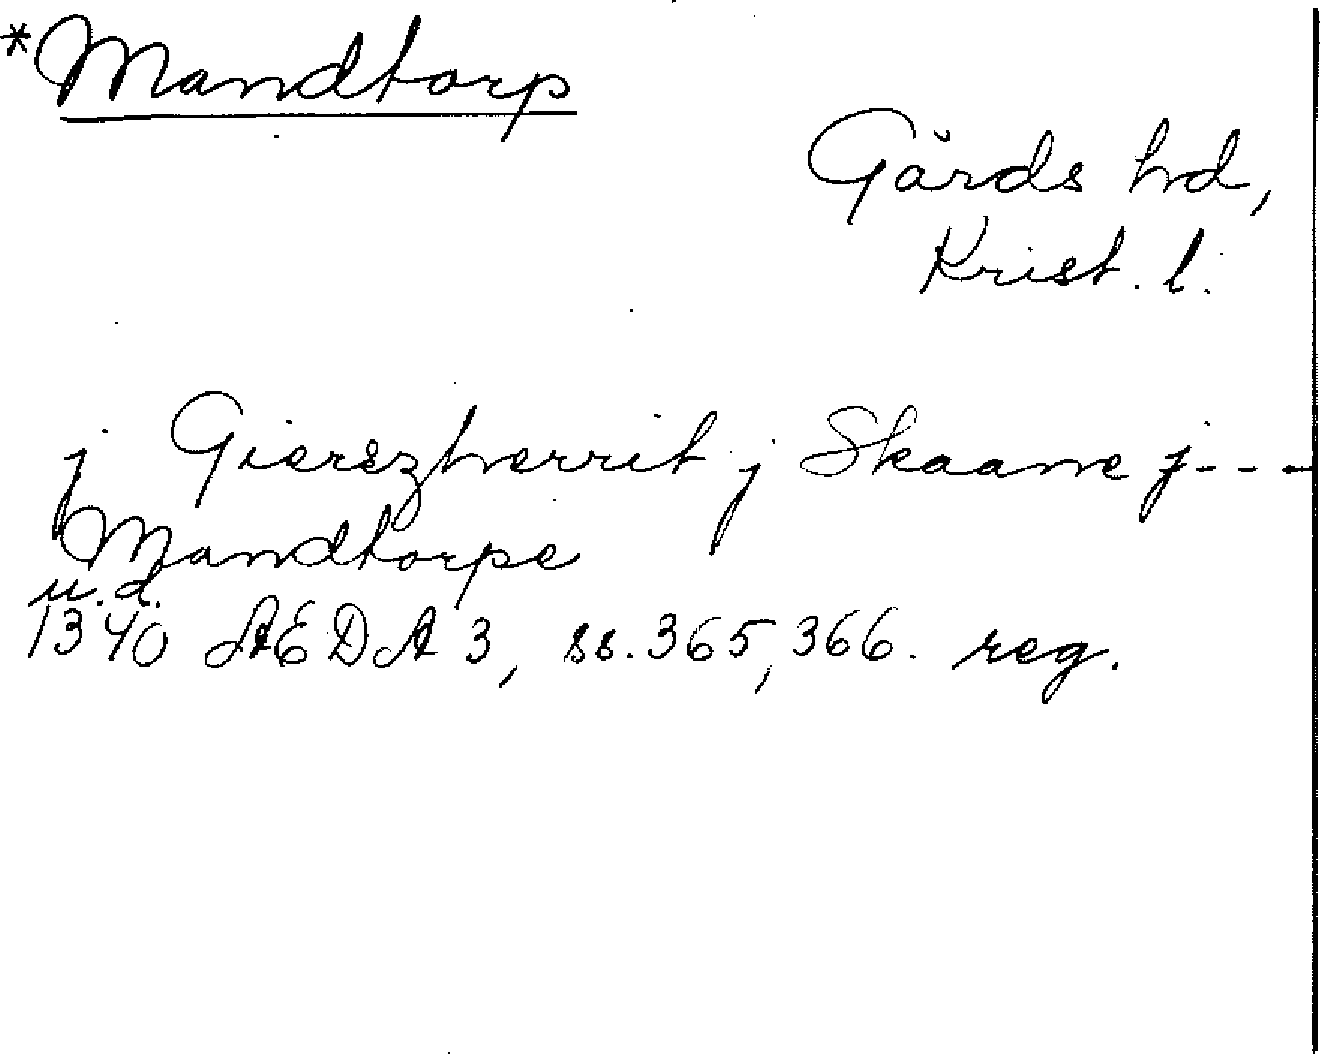 *Mandtorp
Gärds hd,
Krist. l.
j Gierszherrit j Skaane j---
Mandtorpe
u.d.
1340 ÆDA 3, ss. 365, 366. reg.